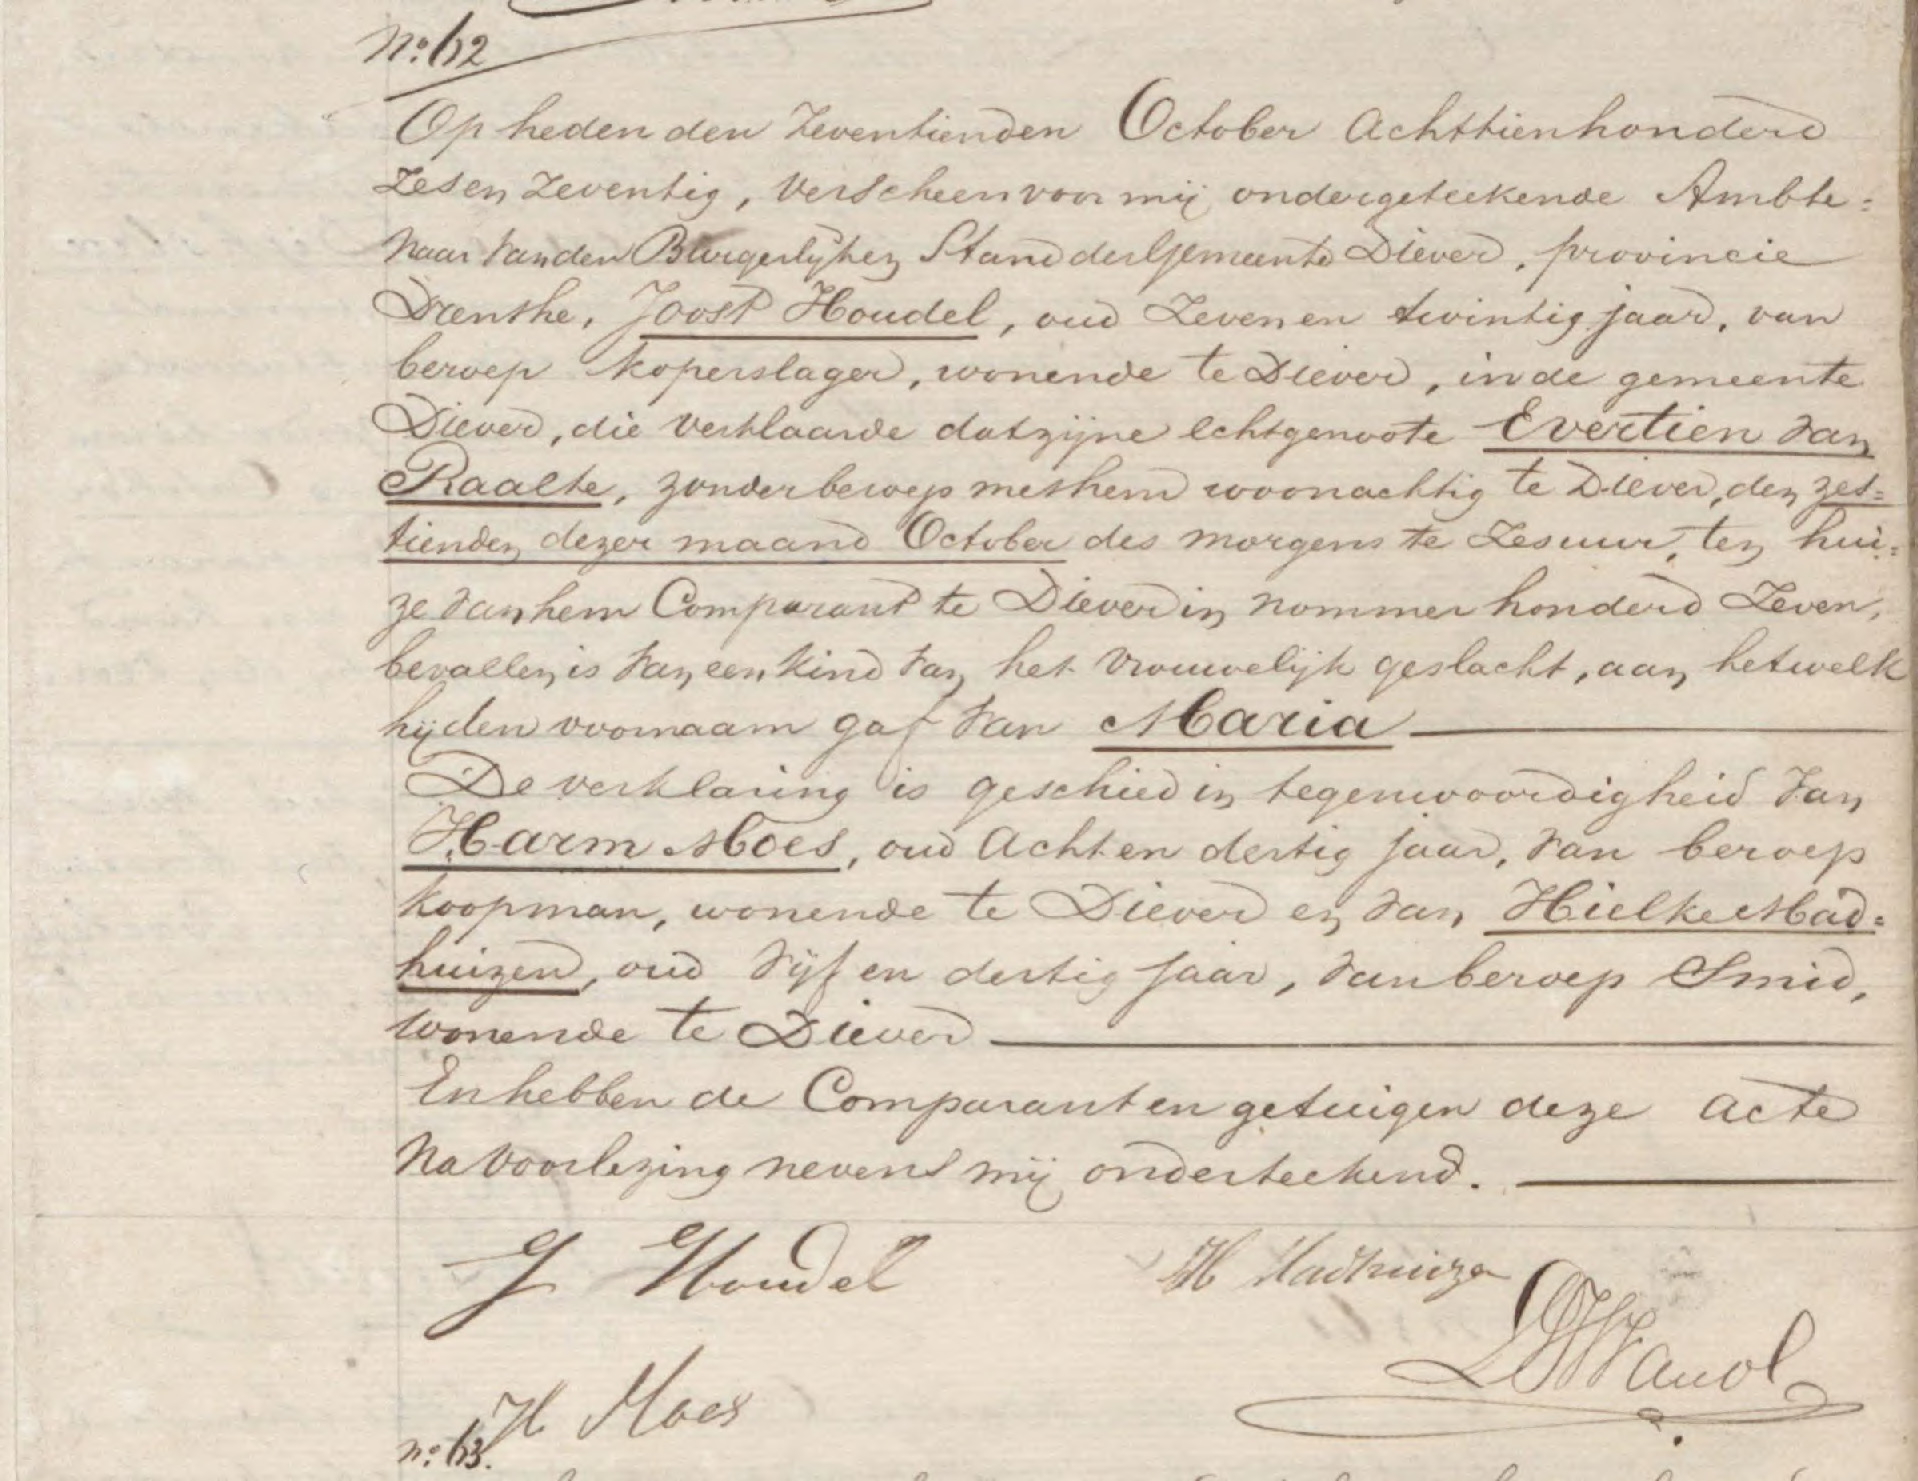 No: 62
Op heden den Zeventienden October Achttienhonderd
Zes en Zeventig, verscheen voor mij ondergeteekende Ambte=
naar van den Burgerlijken Stand der Gemeente Diever, provincie
Drenthe, Joost Houdel, oud Zeven en twintig jaar, van
beroep koperslager, wonende te Diever, in de gemeente
Diever, die verklaarde dat zijne echtgenoote Evertien van
Raalte, zonder beroep met hem woonachtig te Diever, den zes=
tienden dezer maand October des morgens te Zes uur, ten hui=
ze van hem Comparant te Diever in nommer honderd Zeven,
bevallen is van een kind van het vrouwelijk geslacht, aan hetwelk
hij den voornaam gaf van Maria
De verklaring is geschied in tegenwoordigheid van
Harm Moes, oud Acht en dertig jaar, van beroep
koopman, wonende te Diever en van Hielke Mad=
huizen, oud vijf en dertig jaar, van beroep Smid,
wonende te Diever
En hebben de Comparant en getuigen deze acte
na voorlezing nevens mij onderteekend.
J Houdel
H Madhuizen
H Moes
No: 63.